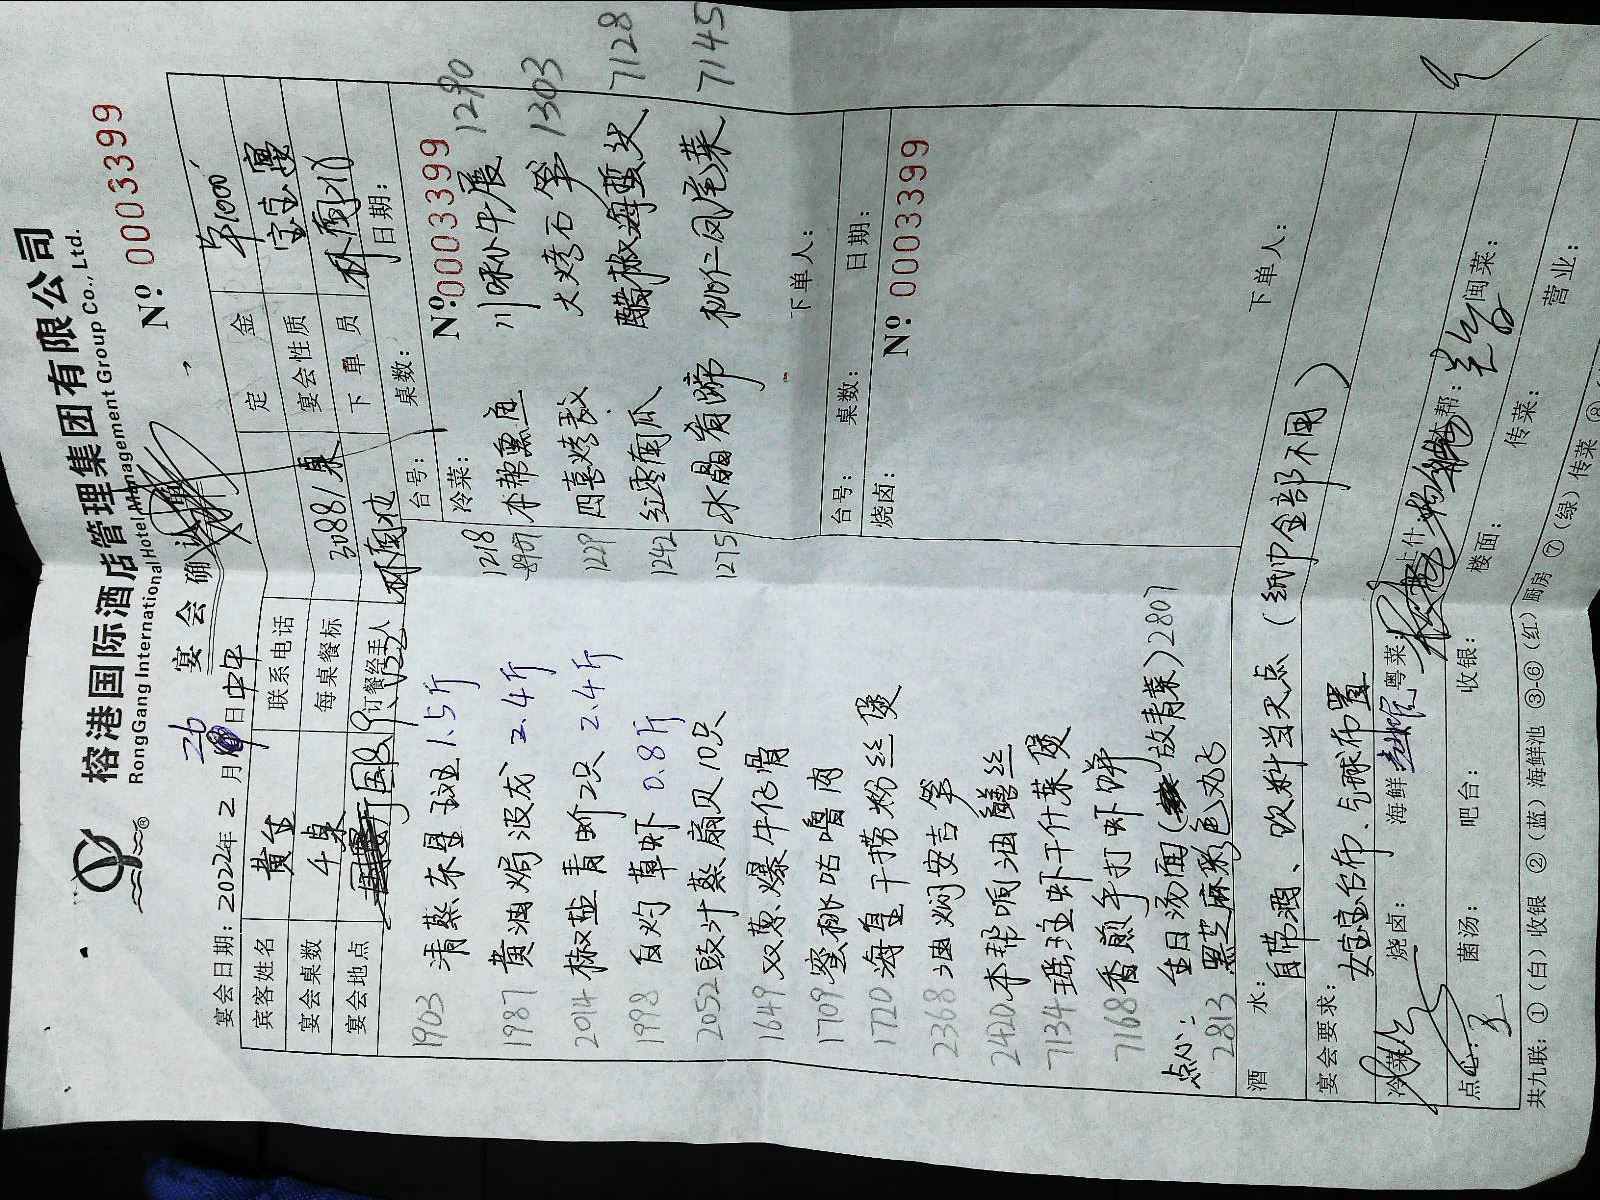 榕港国际酒店管理集团有限公司
RongGang International Hotel Management Group Co., Ltd.
宴会确认 № 0003399
宴会日期：2022年2月26日中午
宾客姓名 黄生 联系电话 定金 1000
宴会桌数 4桌 每桌餐标 3088/桌 宴会性质 宝宝宴
宴会地点 订餐经手人 下单员
台号： 桌数： 日期：
冷菜： №:0003399
1218 川味小牛展 1290
本帮熏鱼 大烤石笋 1303
1229 四喜烤麸 醋椒海蜇头 7128
1242 红枣南瓜 桃仁凤尾菜 7145
1275 水晶肴蹄
1903 清蒸东星斑 1.5斤
1987 黄油焗波龙 2.4斤
2014 椒盐青蟹2只 2.4斤
1998 白灼草虾 0.8斤
2052 豉汁蒸扇贝10只
1649 双葱爆牛仔骨
1709 蜜桃咕噜肉
1720 海皇干捞粉丝煲
2368 油焖安吉笋
2420 本帮响油鳝丝
7134 瑶柱虾干什菜煲
7168 香煎手打虾饼
点心： 生日汤面(放青菜)2807
2813 黑芝麻彩色丸子
下单人：
台号： 桌数： 日期：
烧卤： № 0003399
下单人：
酒水： 自带酒、饮料当天点（纸巾全部不用）
宴会要求： 女宝宝台布、气球布置
冷菜： 烧卤： 海鲜： 粤菜： 上什： 本帮： 闽菜：
点心： 菌汤： 吧台： 收银： 楼面： 传菜： 营业：
共九联：①（白）收银 ②（蓝）海鲜池 ③-⑥（红）厨房 ⑦（绿）传菜